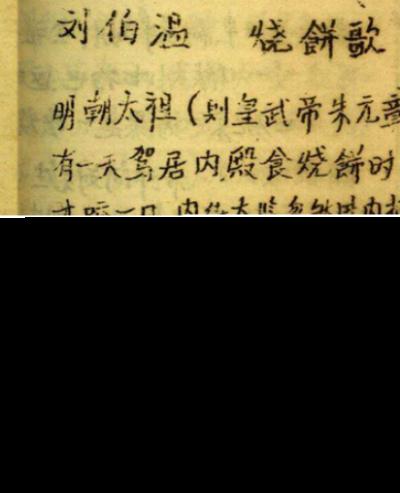 刘伯温 烧餅歌
明朝太祖(则皇武帝朱元
有一天駕居内殿食烧餅时